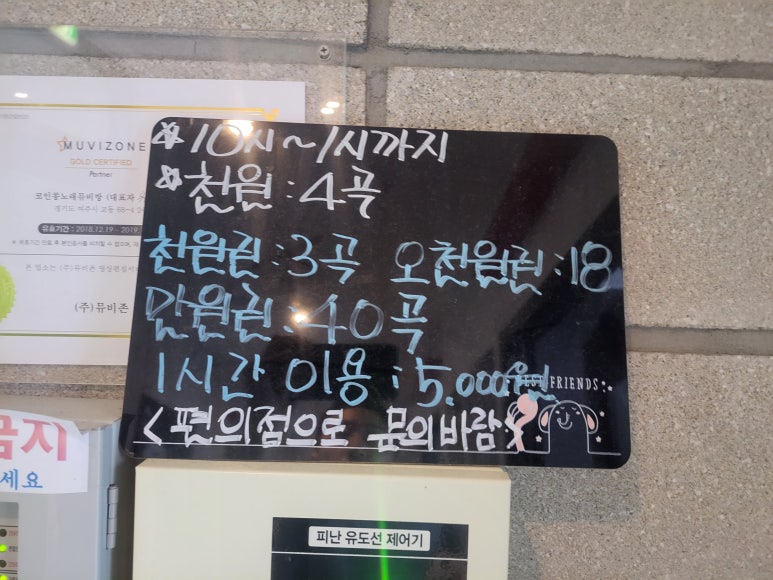 MUVIZONE
GOLD CERTIFIED
Partner
코인꽁노래뮤비방 (대표자
경기도 여주시 교동 68-4 2
유효기간 : 2018.12.19 ~ 2019
(주)뮤비존
☆ 10시~1시까지
☆ 천원 : 4곡
천원권 : 3곡 오천원권 : 18
만원권 : 40곡
1시간 이용 : 5.000원
FRIENDS
<편의점으로 문의바람>
금지
세요
피난 유도선 제어기